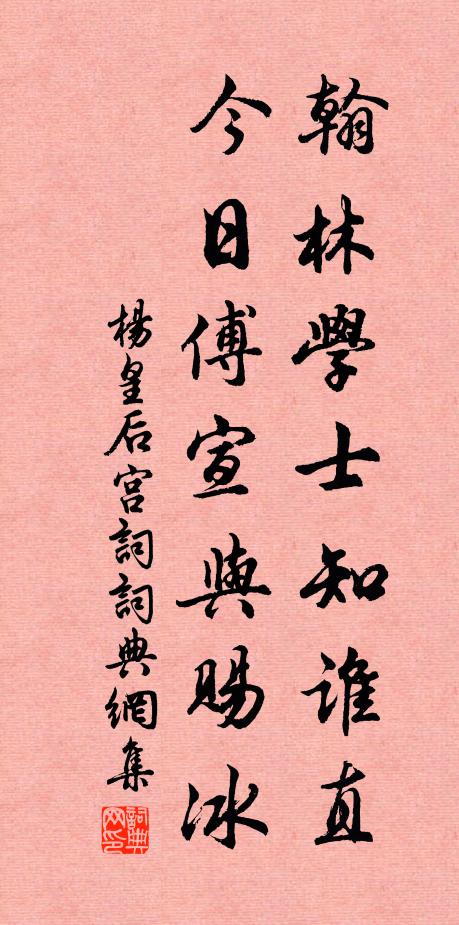 翰林學士知誰直
今日傅宣與賜冰
楊皇后宮詞詞典網集
詞典网印